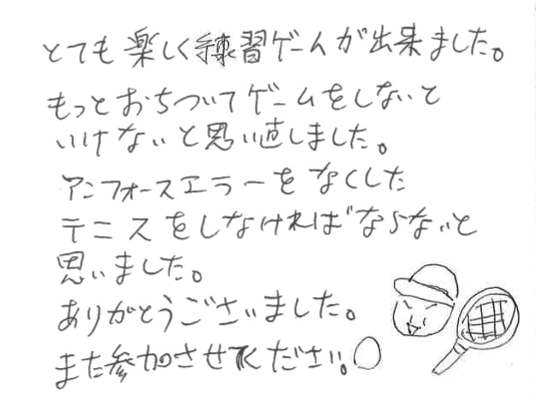 とても楽しく練習ゲームが出来ました。
もっとおちついてゲームをしないと
いけないと思い直しました。
アンフォースエラーをなくした
テニスをしなければならないと
思いました。
ありがとうございました。
また参加させてください。